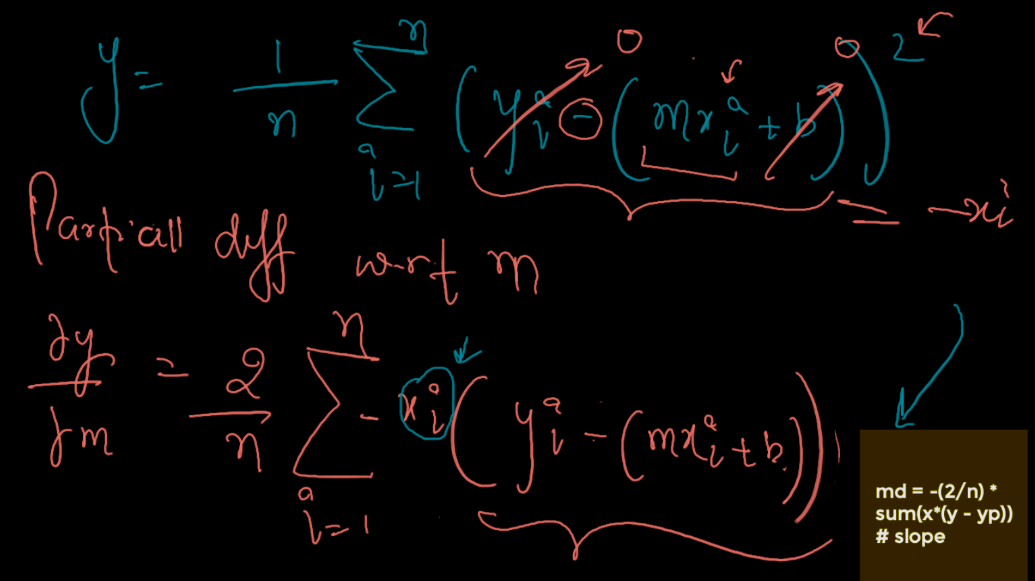 y = 1/n Σ i=1 n (yi - (mxi + b))² 
0 0
= -xi
Partiall diff w.r.t m
∂y/∂m = 2/n Σ i=1 n - xi (yi - (mxi + b))
md = -(2/n) *
sum(x*(y - yp))
# slope